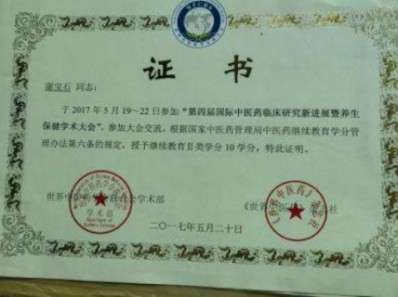 证书
谢宝石 同志:
于2017年5月19~22日参加“第四届国际中医药临床研究新进展暨养生
保健学术大会”,参加大会交流,根据国家中医药管理局中医药继续教育学分管
理办法第六条的规定,授予继续教育Ⅱ类学分10学分,特此证明。
世界中 学术部
学术部
《世界 社
二〇一七年五月二十日